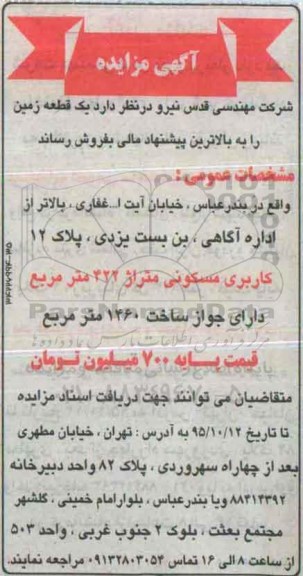 آگهی مزایده
شرکت مهندسی قدس نیرو درنظر دارد یک قطعه زمین
را به بالاترین پیشنهاد مالی بفروش رساند
مشخصات عمومی :
واقع در بندرعباس ، خیابان آیت ا...غفاری ، بالاتر از
اداره آگاهی ، بن بست یزدی ، پلاک ۱۲
کاربری مسکونی متراژ ۴۲۲ متر مربع
دارای جواز ساخت ۱۴۶۰ متر مربع
قیمت پایه ۷۰۰ میلیون تومان
متقاضیان می توانند جهت دریافت اسناد مزایده
تا تاریخ ۹۵/۱۰/۱۲ به آدرس : تهران ، خیابان مطهری
بعد از چهاراه سهروردی ، پلاک ۸۲ واحد دبیرخانه
۸۸۴۱۴۳۹۲ ویا بندرعباس ، بلوارامام خمینی ، گلشهر
مجتمع بعثت ، بلوک ۲ جنوب غربی ، واحد ۵۰۳
از ساعت ۸ الی ۱۶ تماس ۰۹۱۳۲۸۰۳۰۵۳ مراجعه نمایند.